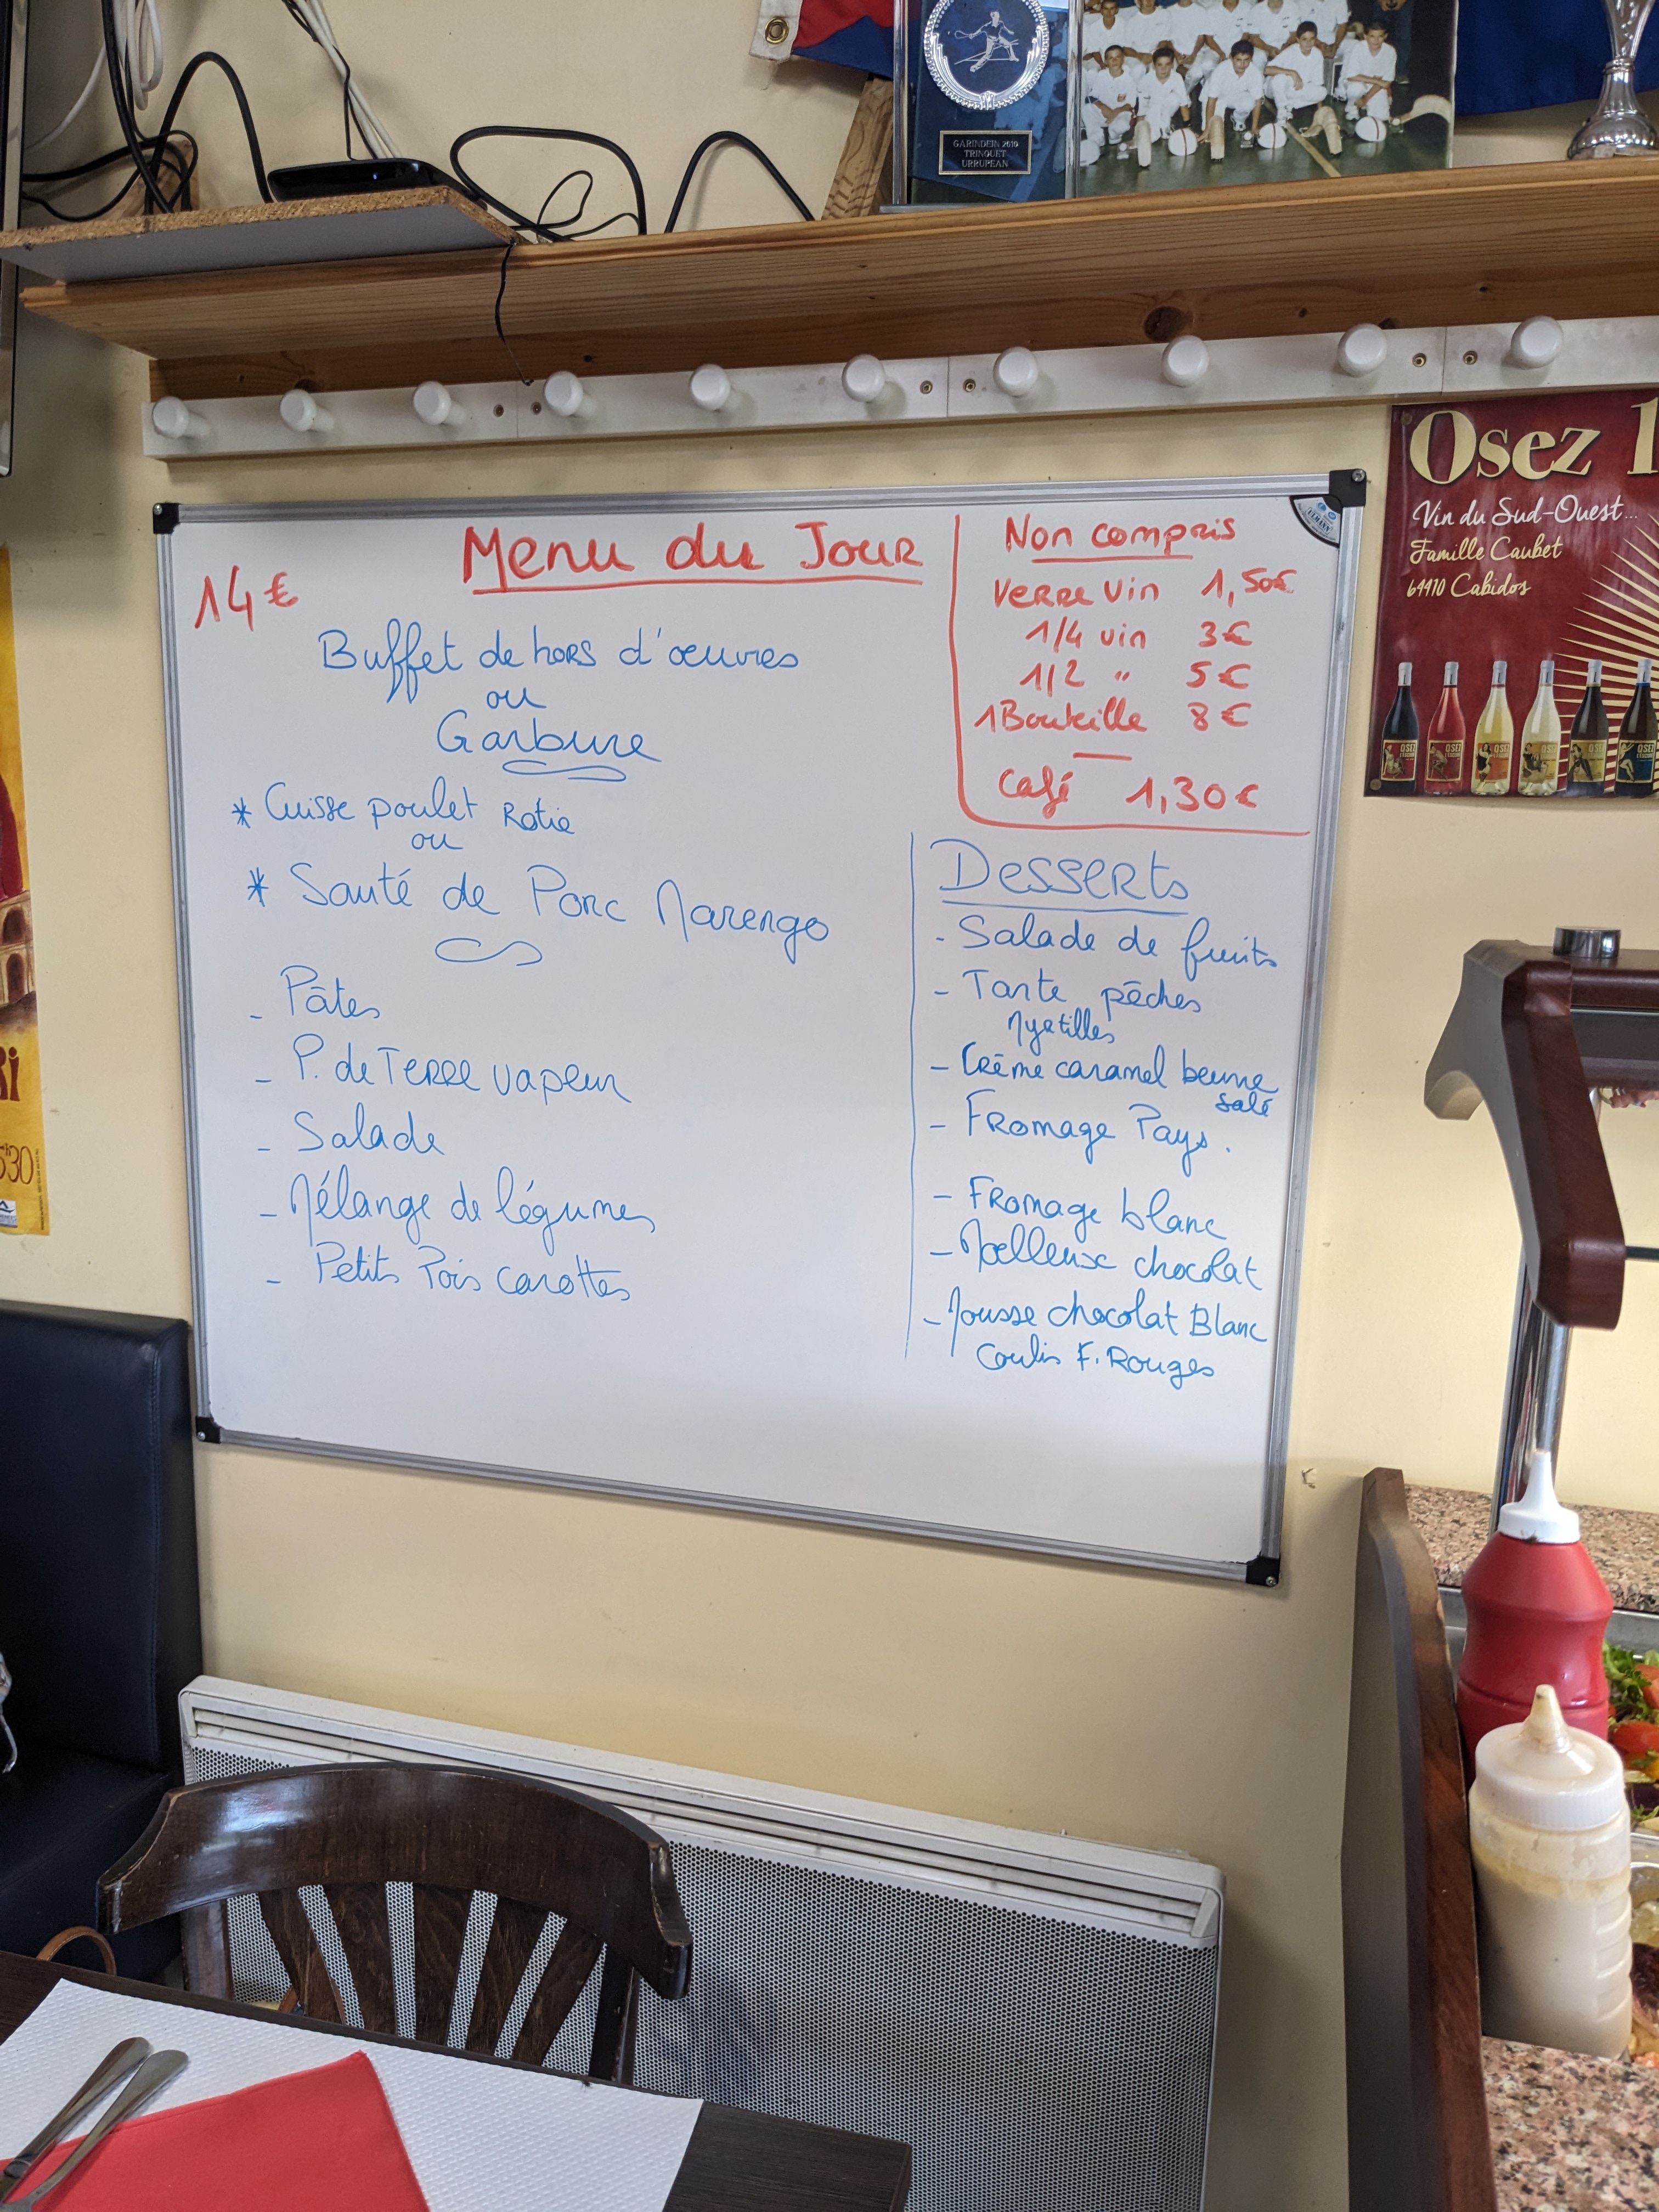 GARINDEIN 2010
TRINQUET
URRUPEAN
Osez l
Vin du Sud-Ouest...
Famille Caubet
64410 Cabidos
OSEZ
OSEZ
OSEZ
OSEZ
OSEZ
OSEZ
Menu du Jour
14€
Buffet de hors d'œuvres
ou
Garbure
* Cuisse poulet Rotie
ou
* Sauté de Porc Marengo
- Pâtes
- P. de Terre vapeur
- Salade
- Mélange de légumes
- Petits Pois carottes
Non compris
Verre Vin 1,50€
1/4 vin 3€
1/2 " 5€
1 Bouteille 8€
Café 1,30€
Desserts
- Salade de fruits
- Tarte pêches
Myrtilles
- Crème caramel beurre
salé
- Fromage Pays.
- Fromage blanc
- Moelleux chocolat
- Mousse chocolat Blanc
Coulis F. Rouges